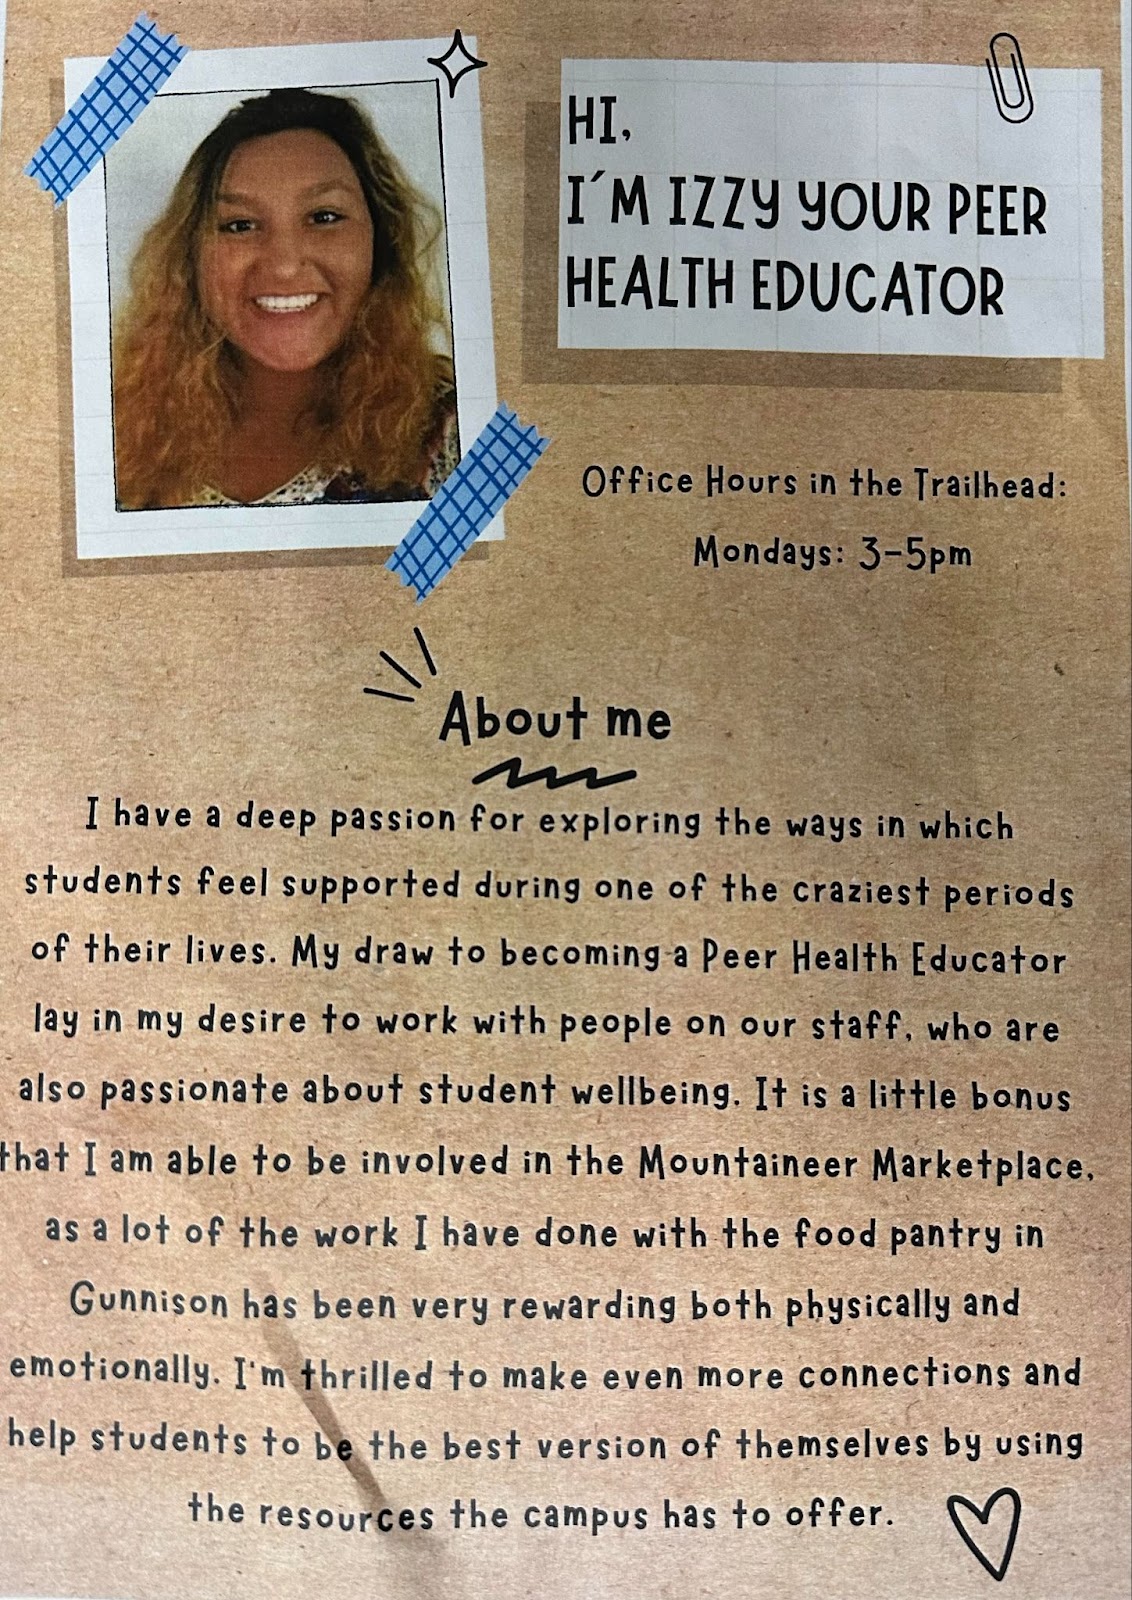 HI,
I´M IZZY YOUR PEER
HEALTH EDUCATOR
Office Hours in the Trailhead:
Mondays: 3-5pm
About me
I have a deep passion for exploring the ways in which
students feel supported during one of the craziest periods
of their lives. My draw to becoming a Peer Health Educator
lay in my desire to work with people on our staff, who are
also passionate about student wellbeing. It is a little bonus
that I am able to be involved in the Mountaineer Marketplace,
as a lot of the work I have done with the food pantry in
Gunnison has been very rewarding both physically and
emotionally. I'm thrilled to make even more connections and
help students to be the best version of themselves by using
the resources the campus has to offer.